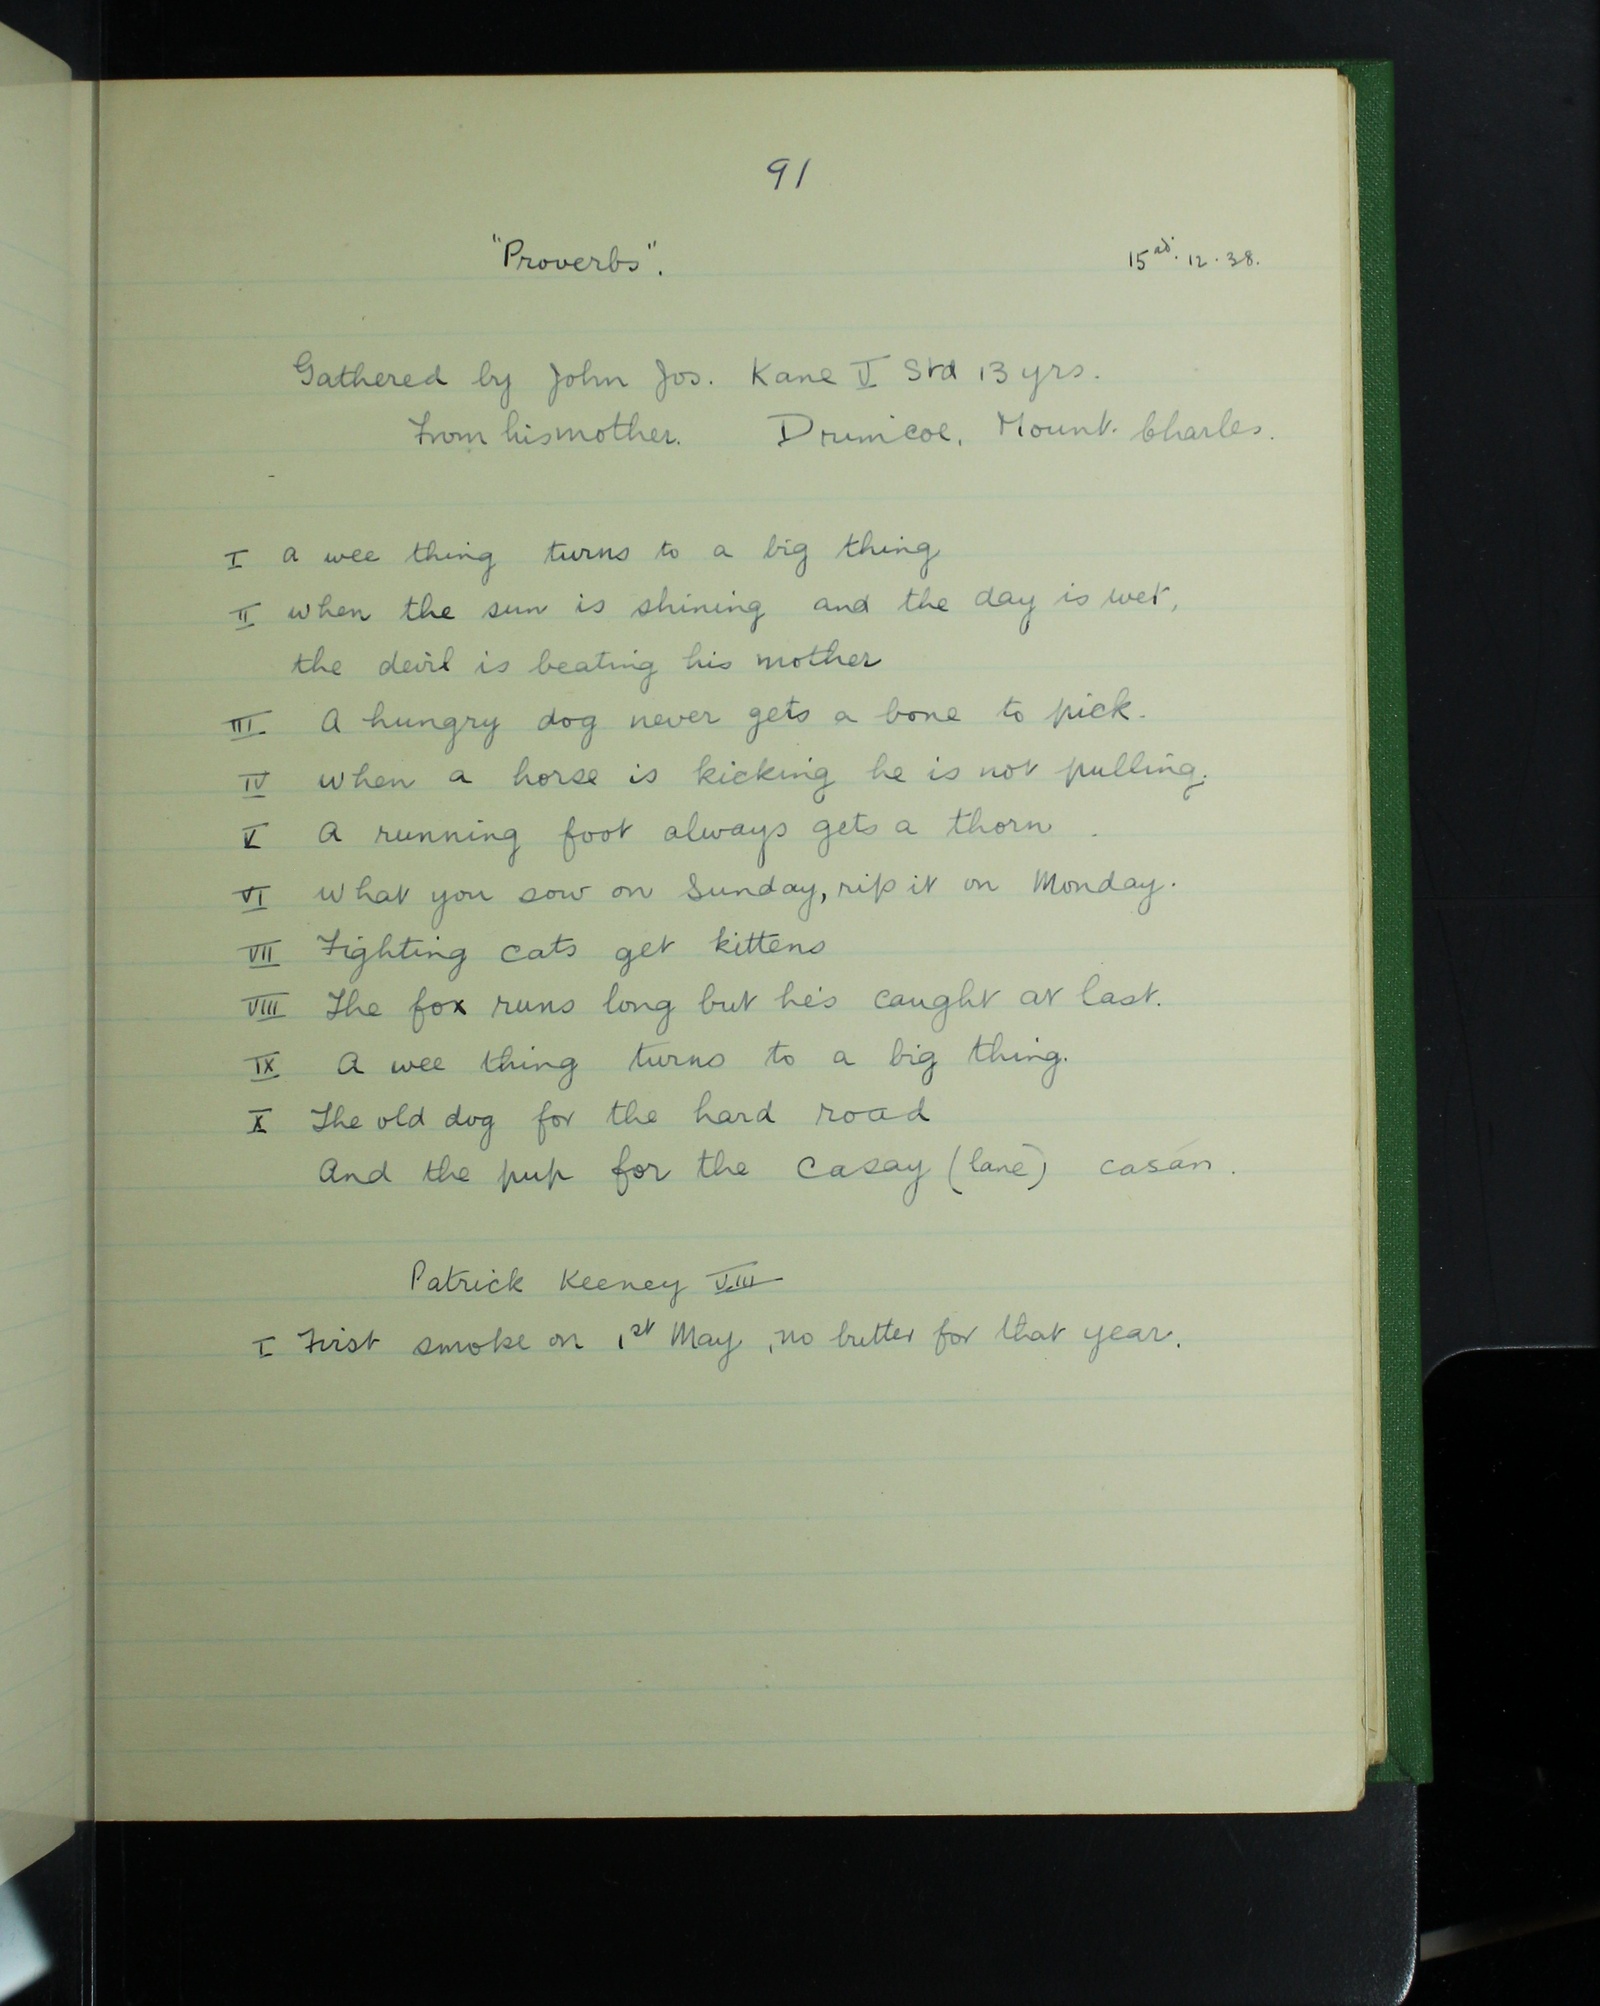 91
"Proverbs". 15ad. 12. 38.
Gathered by John Jos. Kane V Std 13 yrs.
From his mother. Drumcoe, Mount. Charles.
I a wee thing turns to a big thing
II when the sun is shining and the day is wet,
the devil is beating his mother
III A hungry dog never gets a bone to pick.
IV when a horse is kicking he is not pulling.
V A running foot always gets a thorn.
VI what you sow on Sunday, rip it on Monday.
VII Fighting cats get kittens
VIII The fox runs long but he's caught at last.
IX A wee thing turns to a big thing.
X The old dog for the hard road
And the pup for the casay (lane) casán.
Patrick Keeney VIII
I First smoke on 1st May, no butter for that year.